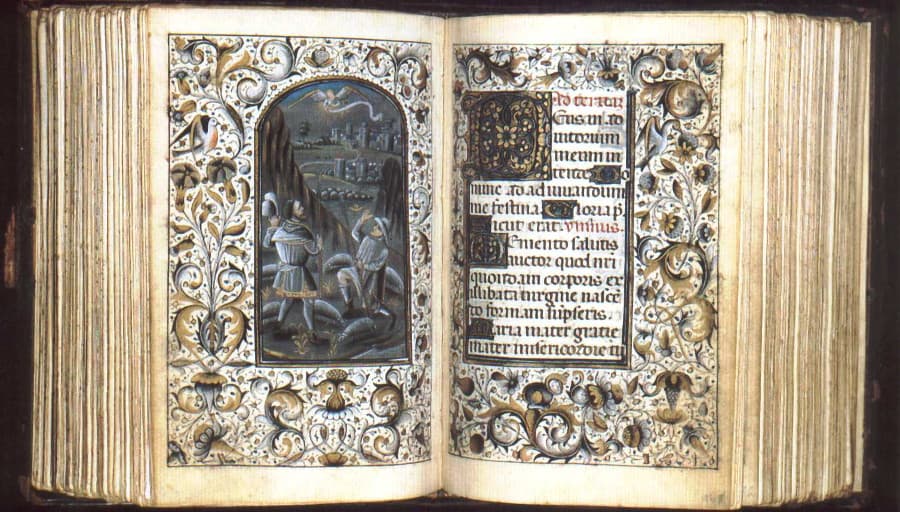 Ad tertiã
Eus in ad
iutorium
meum in
tende Do
mine ad adiuuandum
me festina Gloria p̃
Sicut erat. ymnus.
Memento salutis
auctor quod nr̃i
quondam corporis ex
illibata uirgine nascẽ
do formam sũpseris.
Maria mater gratie
mater misericordie tu